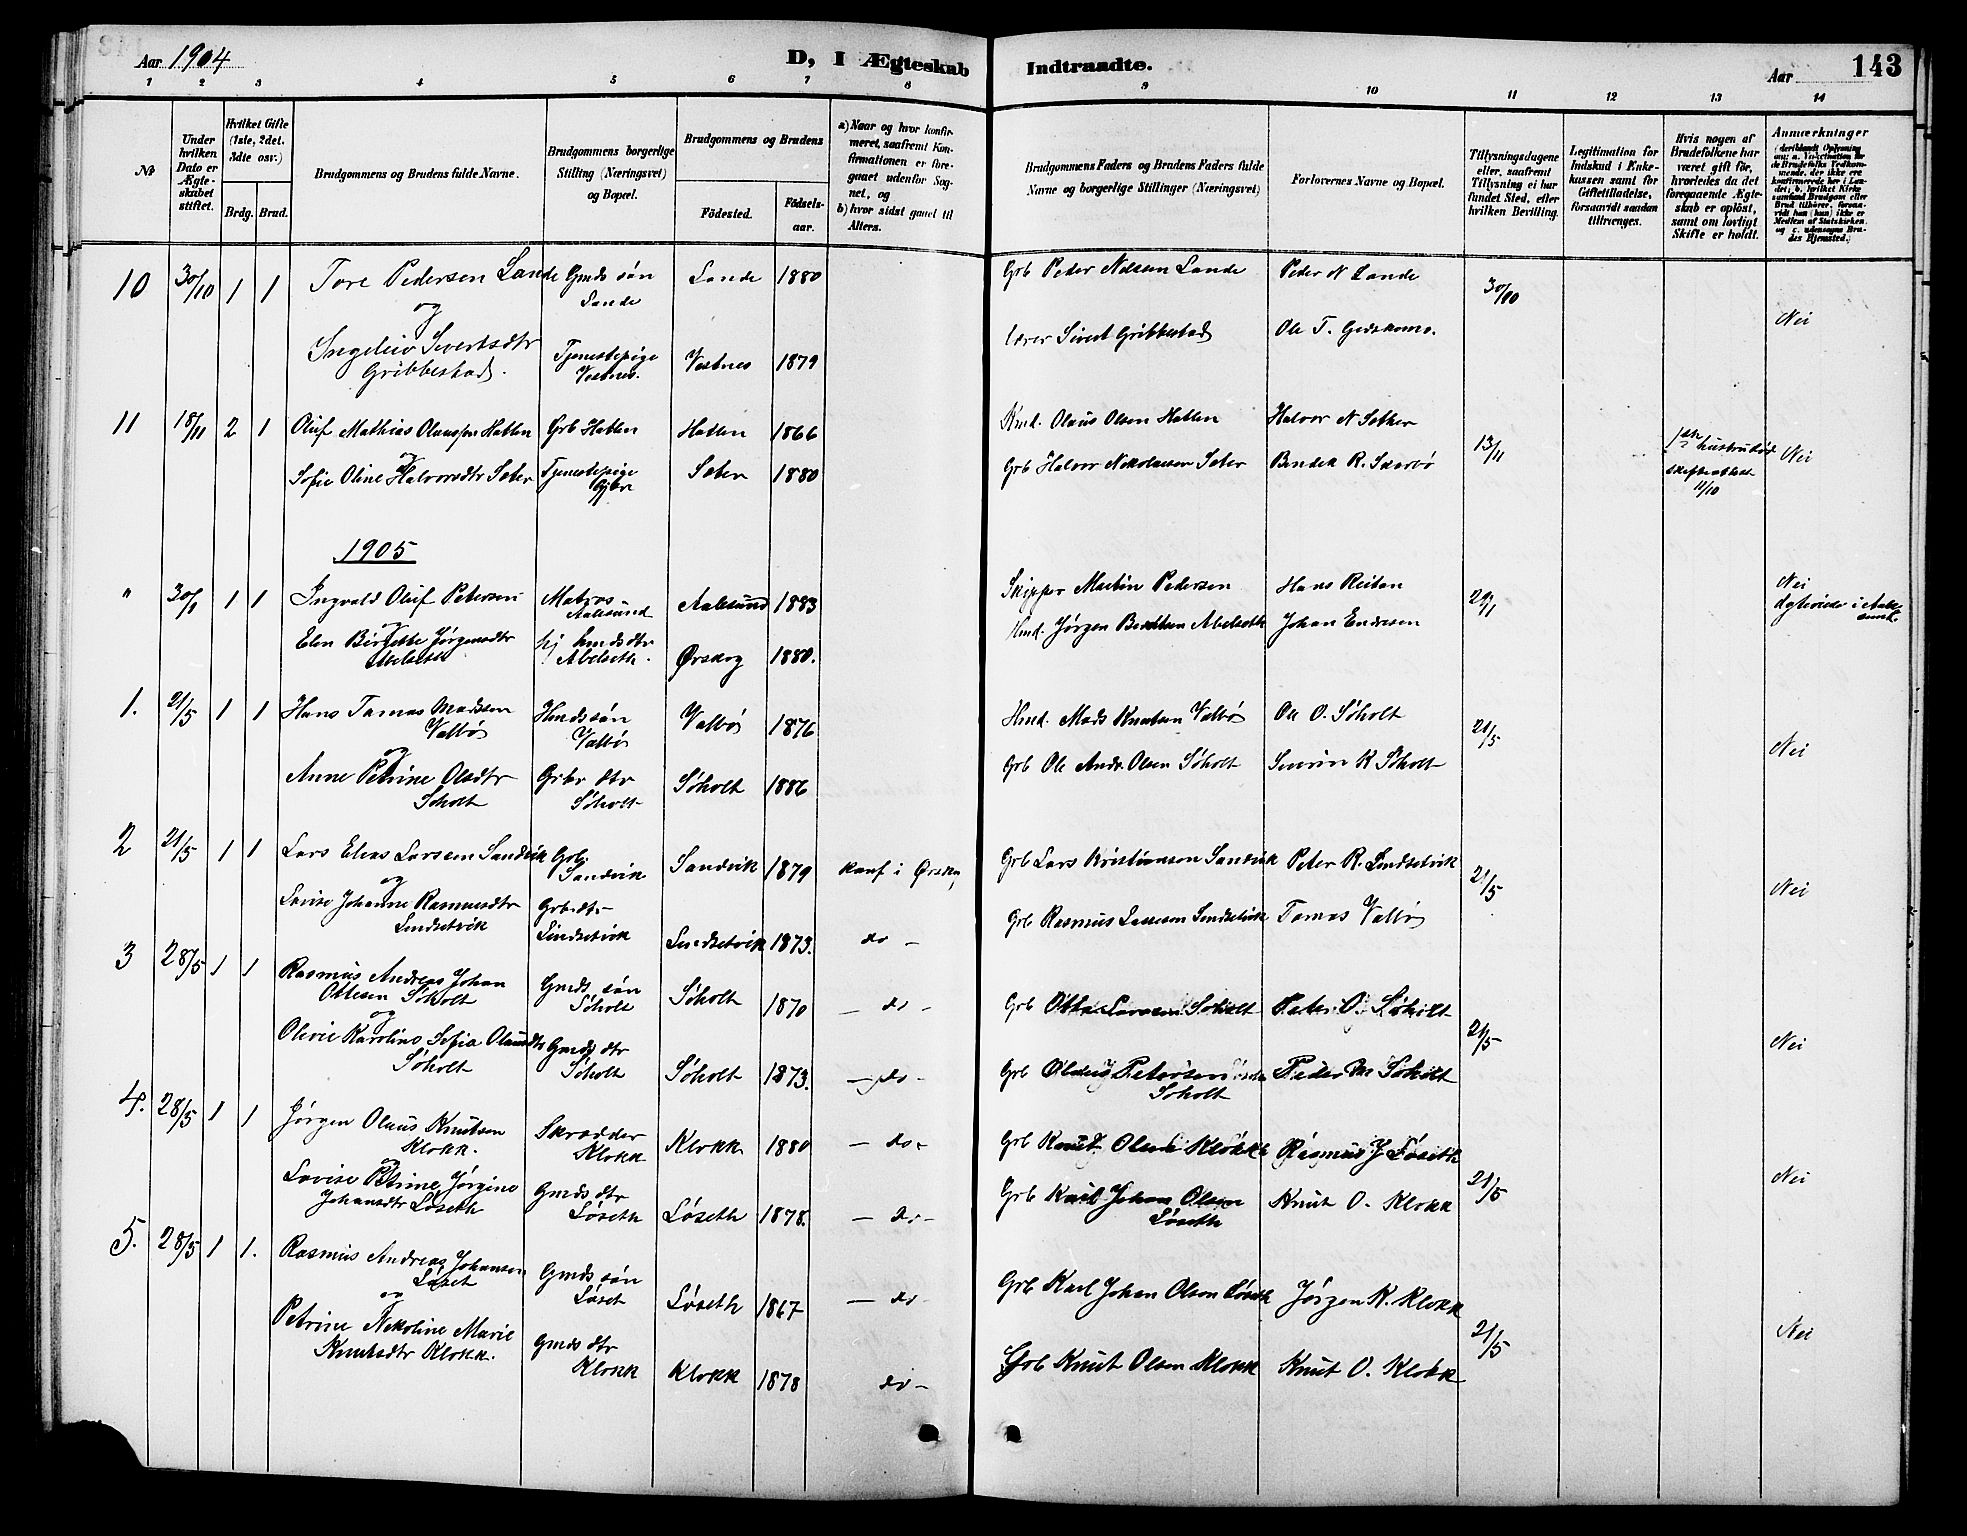 Aar 1904
D, I Ægteskab Indtraadte.
Aar
143
1 2 3 4 5 6 7 8 9 10 11 12 13 14
№
Under hvilken Dato er Ægteskabet stiftet.
Hvilket Gifte (1ste, 2det, 3die osv.)
Brdg. Brud.
Brudgommens og Brudens fulde Navne.
Brudgommens borgerlige Stilling (Næringsvei) og Bopæl.
Brudgommens og Brudens
Fødested.
Fødselsaar.
a) Naar og hvor konfirmeret, saafremt Konfirmationen er foregaaet udenfor Sognet, og
b) hvor sidst gaaet til Alters.
Brudgommens Faders og Brudens Faders fulde Navne og borgerlige Stillinger (Næringsvei)
Forlovernes Navne og Bopæl.
Tillysningsdagene eller, saafremt Tillysning ei har fundet Sted, efter hvilken Bevilling.
Legitimation for Indskud i Enkekassen samt for Giftetilladelse, forsaavidt saadan tiltrænges.
Hvis nogen af Brudefolkene har været gift før, hvorledes da det foregaaende Ægteskab er opløst, samt om lovligt Skifte er holdt.
Anmærkninger
10 30/10 1 1 Tore Pedersen Lande Gmds søn Lande Lande 1880 Grb Peder Nilsen Lande Peder N Lande 30/10 Nei
og
Sivertsdtr Gribbestad. Tjenestepige Vestnes. Vestnes 1879 Lærer Sivert Gribbestad Ole T.
11 18/11 2 1 Oluf Mathias Olaussen Hatlen Grb Hatlen Hatlen 1866 Kmd. Olaus Olsen Hatlen Halvor N Sæter 13/11 Nei
og
Sofie Oline Halvorsdtr Sæter Tjenestepige Sæter 1880 Grb Halvor Nikolausen Sæter Bendik R.
11/10
1905
" 30/1 1 1 Ingvald Oluf Petersen Matros Aalesund Aalesund 1883 Skipper Martin Pedersen Hans Reiten 29/1 Nei
og
Elen Birgitte Jørgensdtr Abelseth Abelseth. Ørskog 1880. Hmd. Jørgen Abelseth Johan Endresen
1. 21/5 1 1 Hans Tomas Madssen Valbø Hmds søn Valbø Valbø 1876 Hmd. Mads Knutsen Valbø Ole O. Søholt 21/5 Nei
og
Anne Petrine Olsdtr Søholt Grbr dtr Søholt Søholt 1886 Grb Ole Andr. Olsen Søholt Severin K Søholt
2 21/5 1 1 Lars Elias Larssen Sandvik Grb. Sandvik Sandvik 1879 konf i Ørskog Grb Lars Kristiansen Sandvik Peter R. Lindsetvik 21/5 Nei
og
Lovise Johanne Rasmusdtr Lindsetvik Grbr dtr Lindsetvik Lindsetvik 1873. do - Grb Rasmus Larssen Lindsetvik Tomas Valbø
3 28/5 1 1 Rasmus Andreas Johan Ottesen Søholt Gmds søn Søholt Søholt 1870 - do - Grb Otto Larssen Søholt Peter O. Søholt 21/5 Nei
og
Olivie Karoline Sofia Søholt Gmds dtr Søholt Søholt 1873. - do - Grb Petersen Søholt Peder Søholt
4. 28/5 1 1 Jørgen Olaus Knutsen Klokk. Skrædder Klokk Klokk 1880 - do - Grb Knut Olsen Klokk Rasmus J Løseth 21/5 Nei
og
Lovise Petrine Jørgine Johansdtr Løseth Gmds dtr Løseth Løseth 1878. - do - Grb Karl Johan Olsen Løseth Knut O. Klokk
5. 28/5 1 1. Rasmus Andreas Johansen Løset Gmds søn Løset Løseth 1867 - do - Grb Karl Johan Olsen Løseth Jørgen K. Klokk 21/5 Nei
og
Petrine Nekoline Marie Knutsdtr Klokk. Gmds dtr Klokk Klokk 1878 do - Grb Knut Olsen Klokk Knut O. Klokk